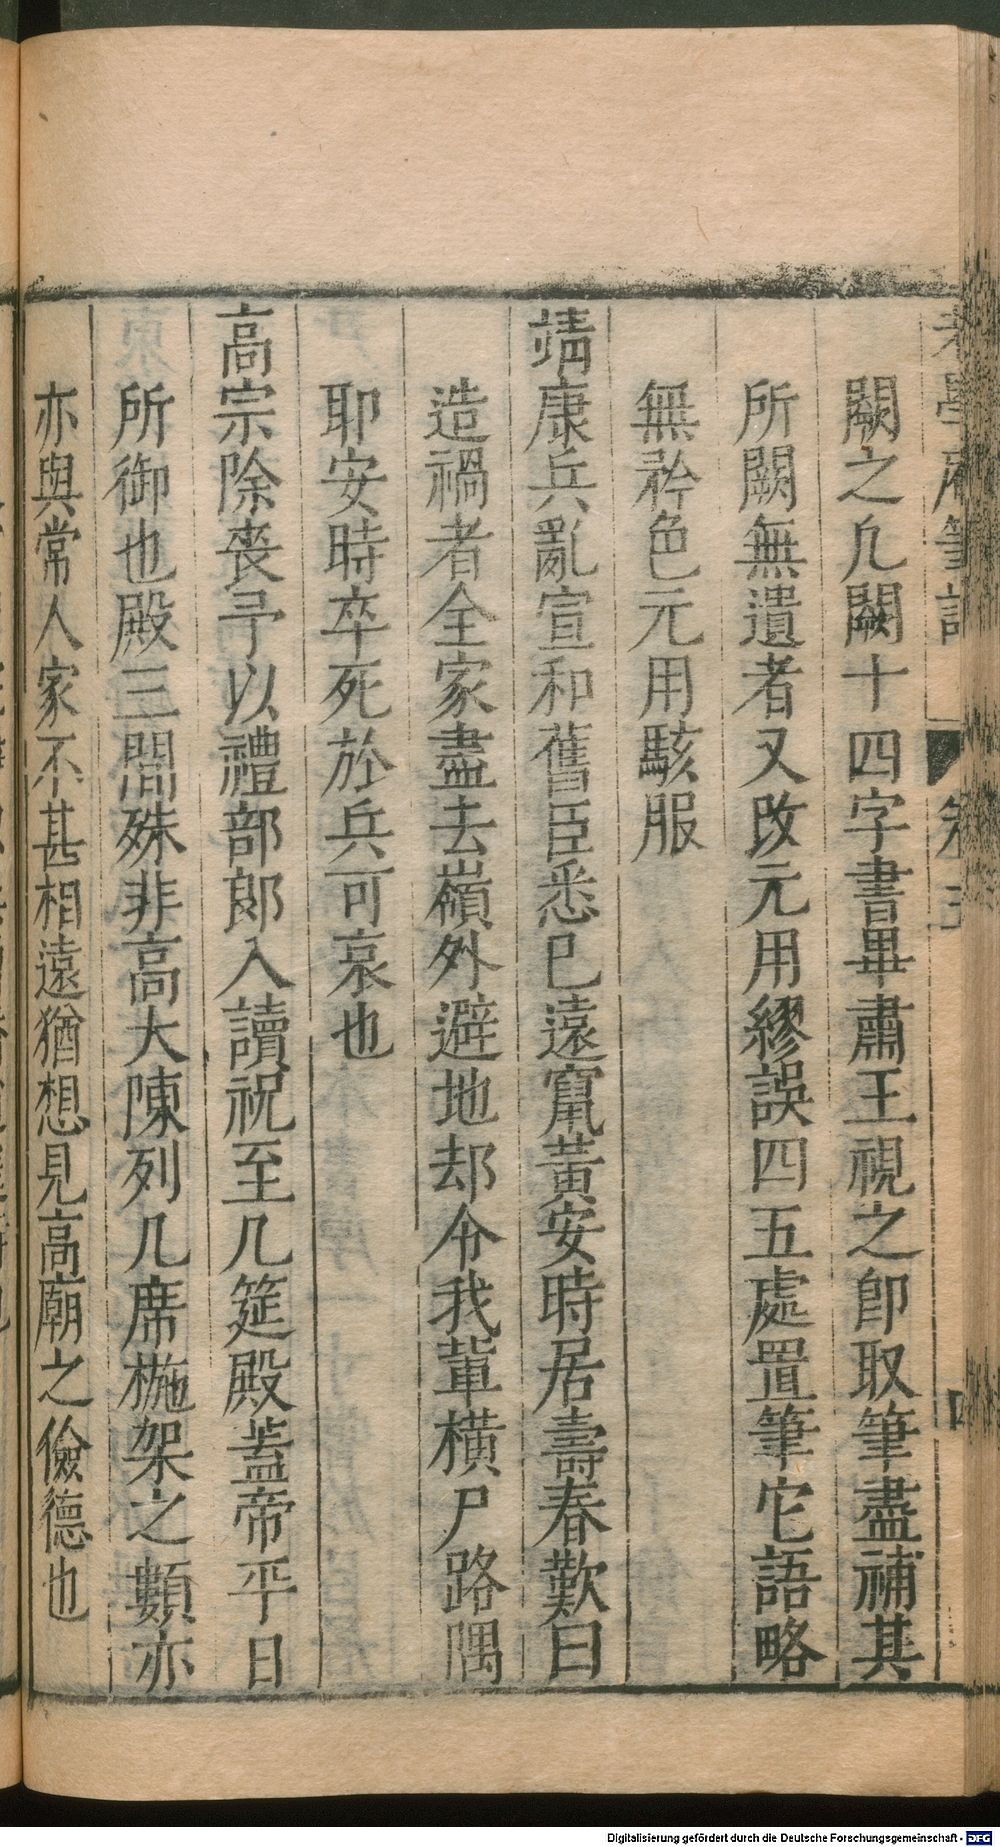 闕之凡闕十四字書畢肅王視之卽取筆盡補其
所闕無遺者又改元用繆誤四五處置筆它語略
無矜色元用駭服
靖康兵亂宣和舊臣悉已遠竄黃安時居壽春歎曰
造禍者全家盡去嶺外避地却令我輩橫尸路隅
耶安時卒死於兵可哀也
高宗除喪予以禮部郎入讀祝至几筵殿葢帝平日
所御也殿三間殊非高大陳列几席椸架之類亦
亦與常人家不甚相遠猶想見高廟之儉德也
Digitalisierung gefördert durch die Deutsche Forschungsgemeinschaft - DFG